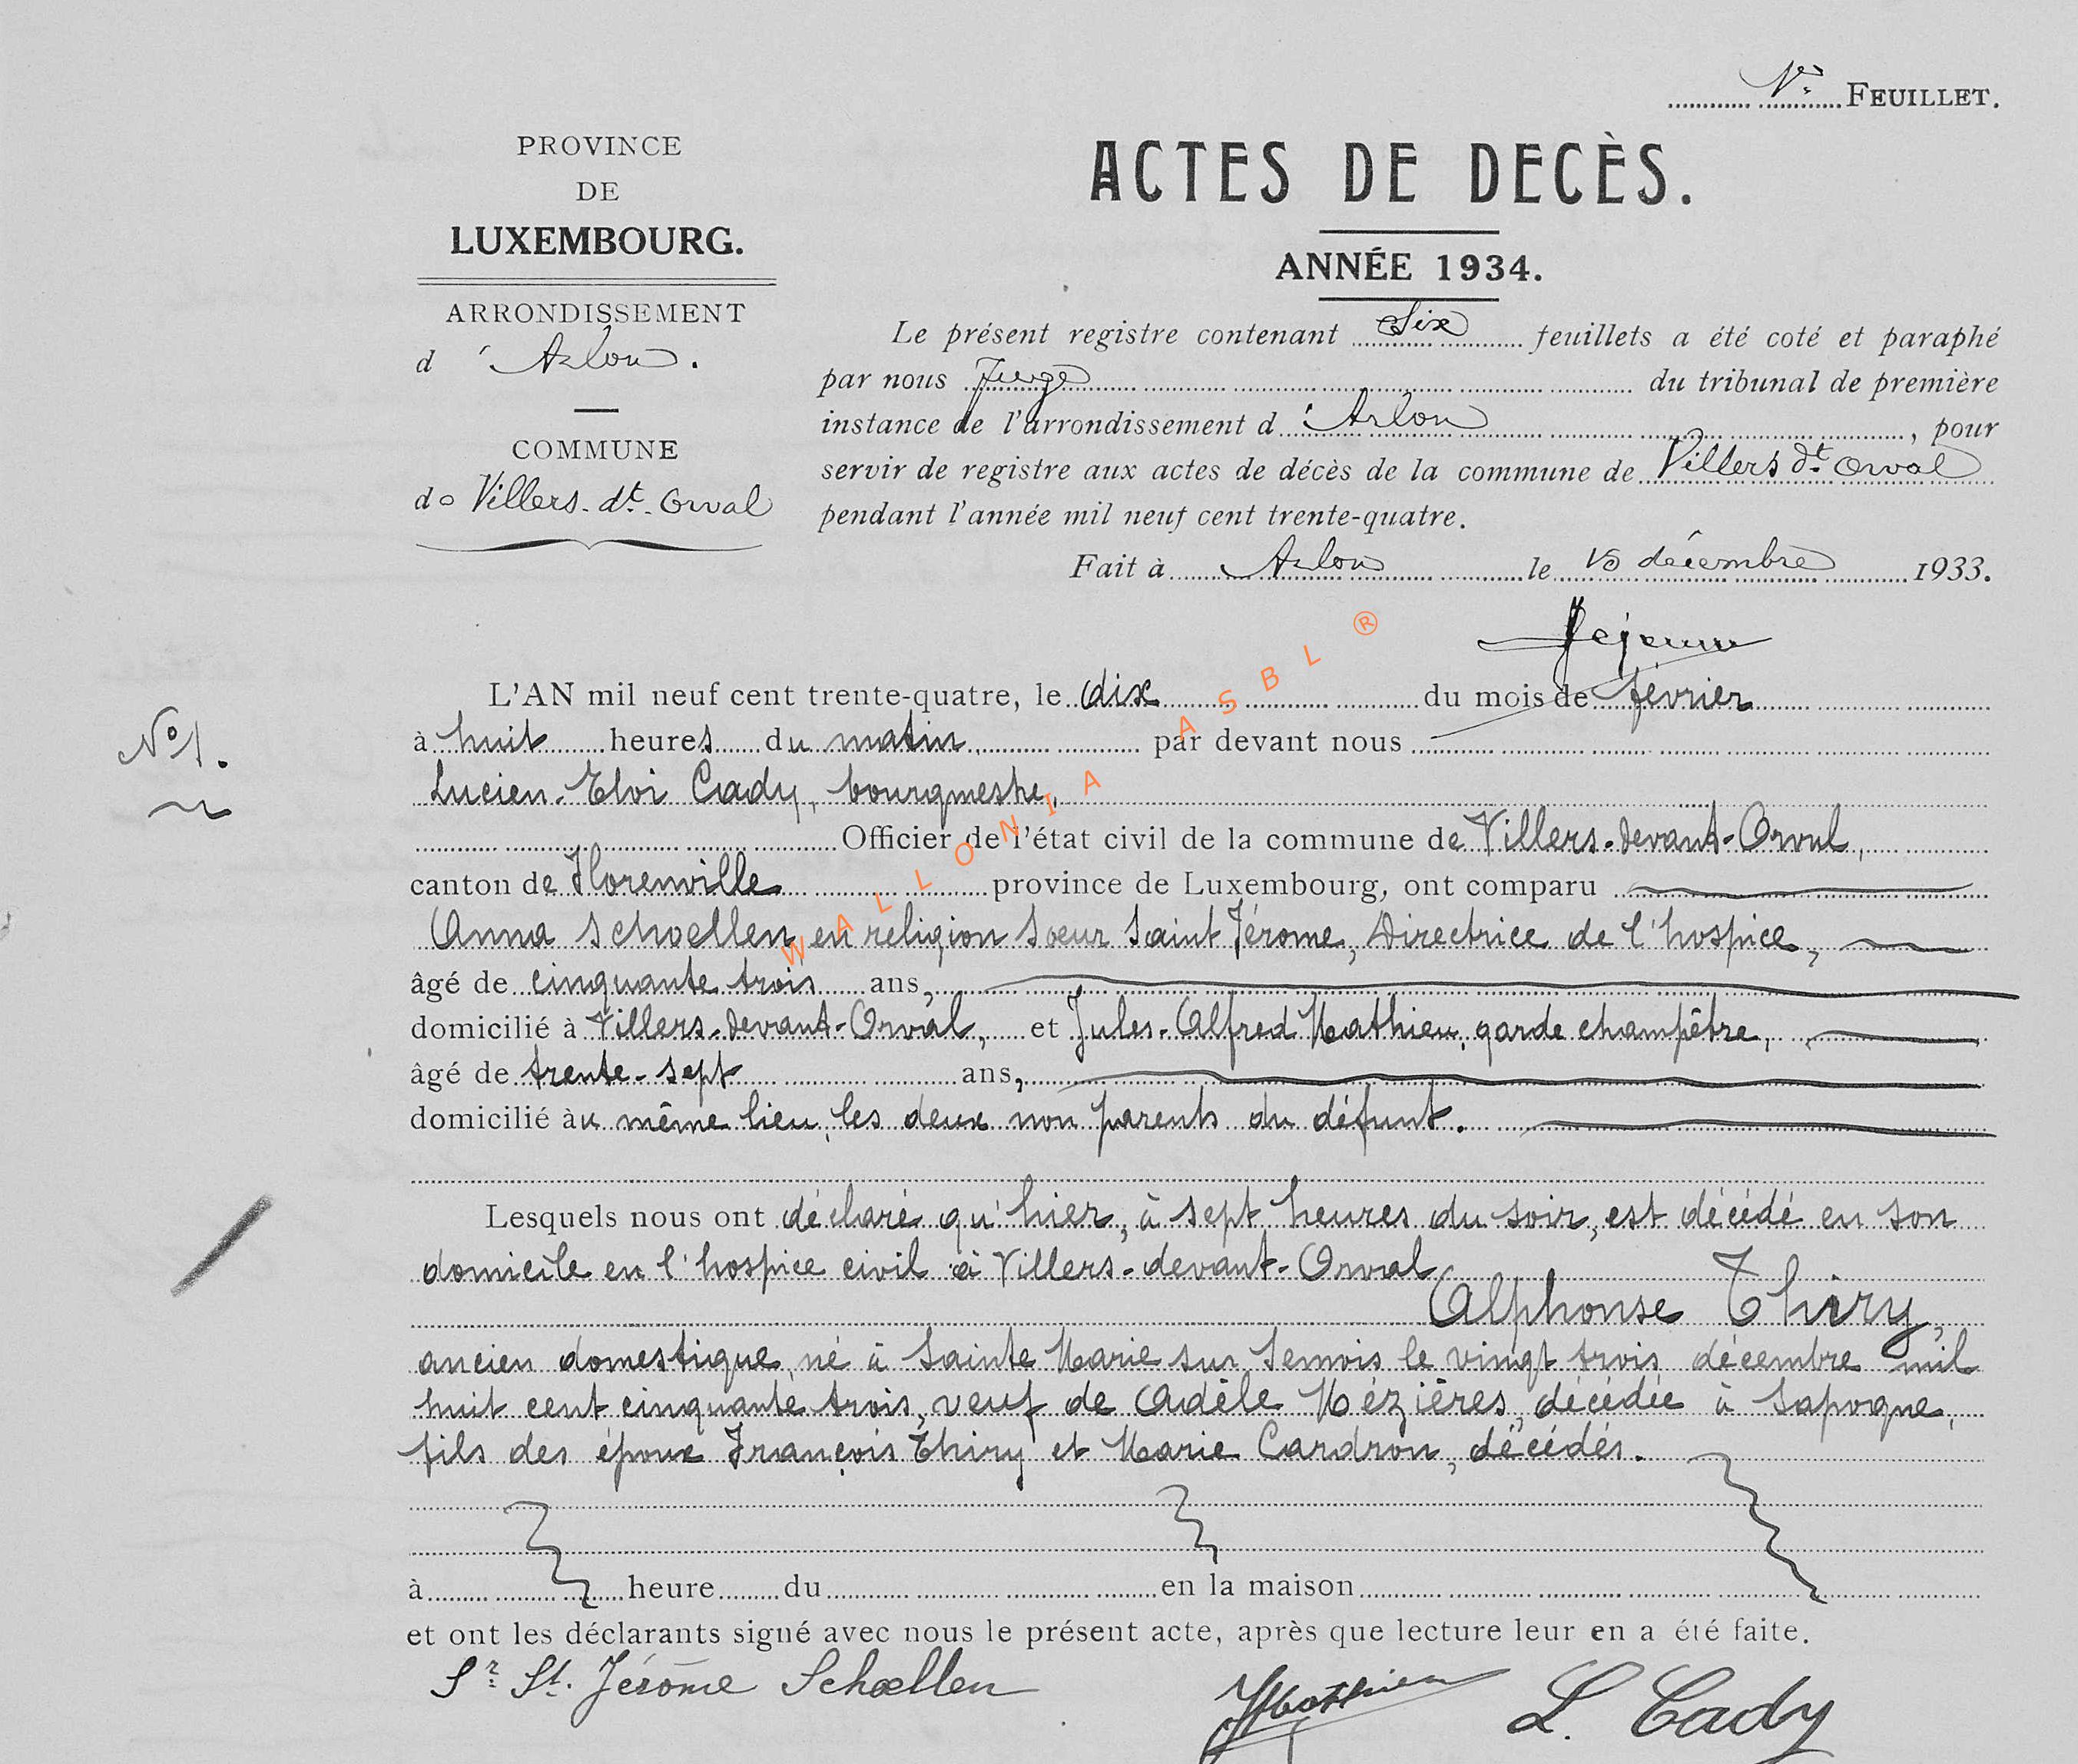 1er FEUILLET.
PROVINCE
DE
LUXEMBOURG.
ARRONDISSEMENT
d'Arlon.
COMMUNE
de Villers-dt-Orval
ACTES DE DECÈS.
ANNÉE 1934.
Le présent registre contenant Six feuillets a été coté et paraphé
par nous Juge du tribunal de première
instance de l'arrondissement d'Arlon, pour
servir de registre aux actes de décès de la commune de Villers dt Orval
pendant l'année mil neuf cent trente-quatre.
Fait à Arlon le décembre 1933.
Lejeune
L'AN mil neuf cent trente-quatre, le dix du mois de février
N° 1.
à huit heures du matin, par devant nous
Lucien-Eloi Cady, bourgmestre,
Officier de l'état civil de la commune de Villers-devant-Orval,
canton de Florenville province de Luxembourg, ont comparu
Anna Schoellen en religion Soeur Saint Jérome, Directrice de l'hospice,
âgé de cinquante trois ans,
domicilié à Villers-devant-Orval, et Jules-Alfred Mathieu, garde champêtre,
âgé de trente-sept ans,
domicilié àu même lieu, les deux non parents du défunt.
Lesquels nous ont déclaré qu'hier, à sept heures du soir, est décédé en son
domicile en l'hospice civil à Villers-devant-Orval
Alphonse Thiry,
ancien domestique, né à Sainte Marie sur Semois le vingt trois décembre mil
huit cent cinquante trois, veuf de Adèle Mézières, décédée à Sapogne,
fils des époux François Thiry et Marie Cardron, décédés.
à heure du en la maison
et ont les déclarants signé avec nous le présent acte, après que lecture leur en a été faite.
Sr St. Jérome Schœllen JMathieu L. Cady
WALLONIA ASBL ®